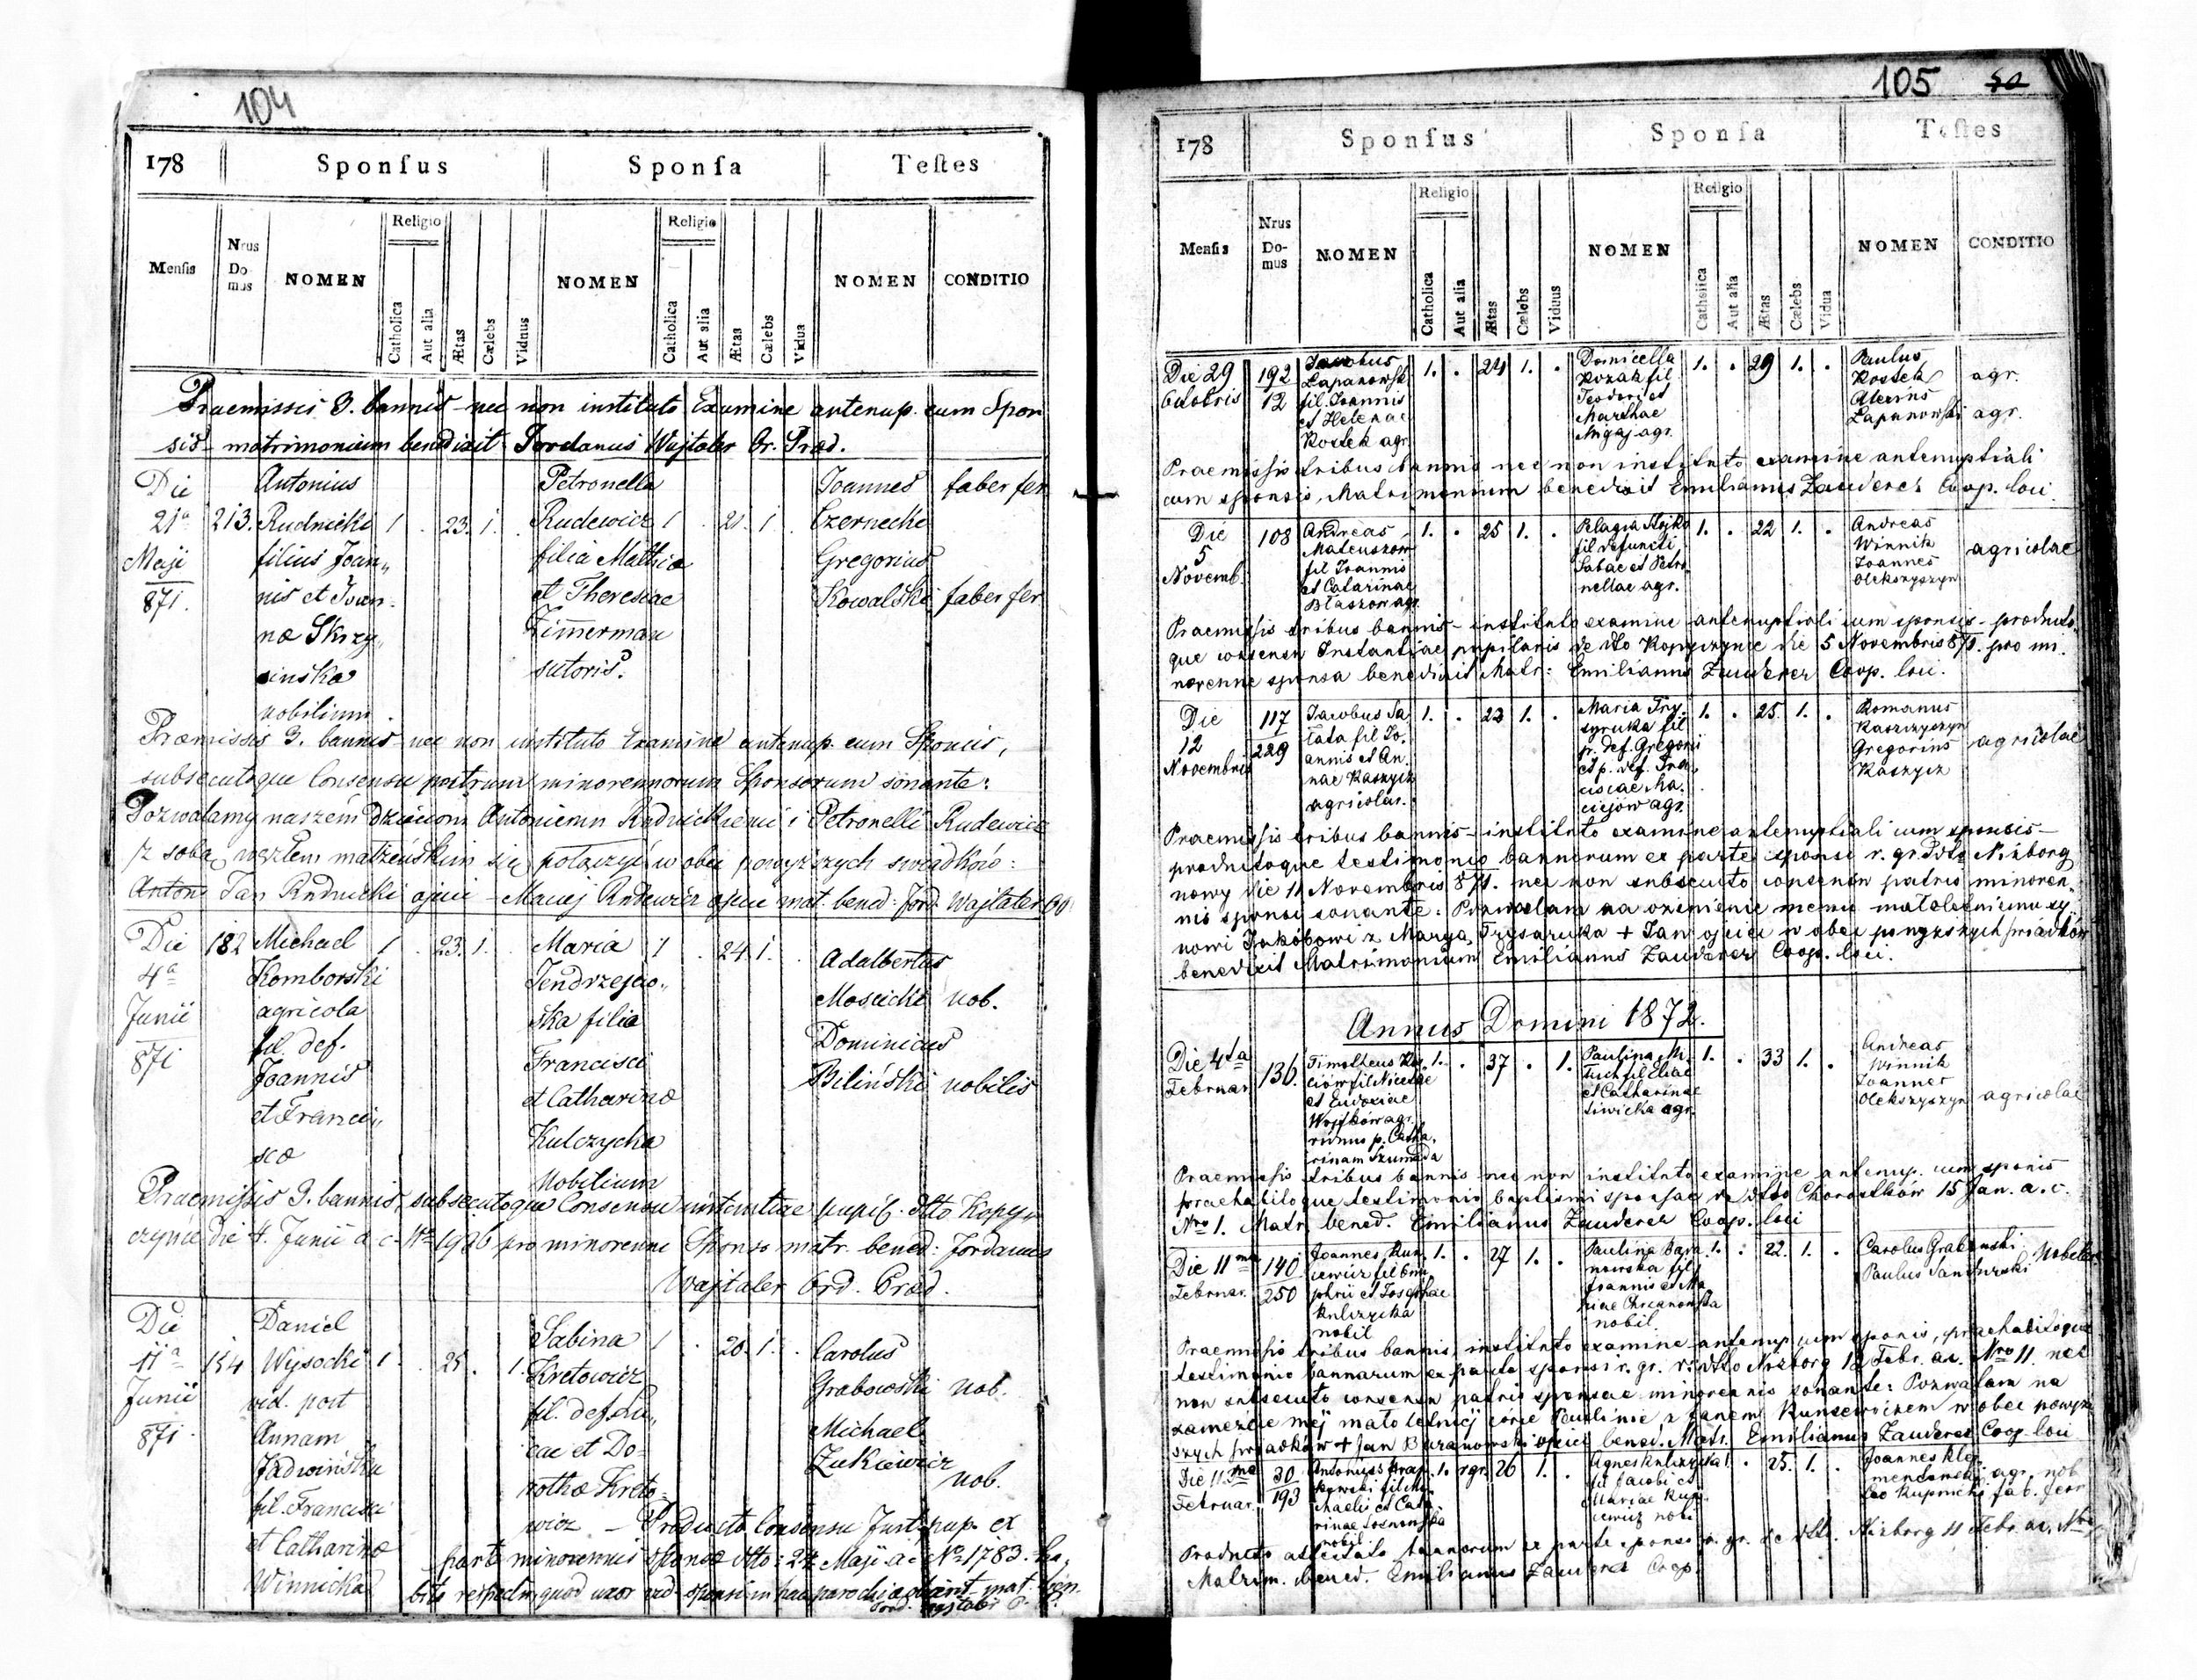 104
178 Sponſus Sponſa Teſtes
Menſis Nrus Domus NOMEN Religio Catholica Aut alia Ætas Cælebs Viduus NOMEN Religio Catholica Aut alia Ætas Cælebs Vidua NOMEN CONDITIO
Praemissis 3. bannis nec non instituto Examine antenup. cum Spon
sis matrimonium benedixit Jordanus Wajtaler Or. Præd.
Die Antonius Petronella Joannes faber fer
21a 213. Rudnicki 1 . 23. 1. . Rudewicz 1 . 21. 1. . Czernecki
Maji filius Joan„ filia Mathiæ Gregorius
871. nis et Joan. et Theresiae Kowalski faber fer
næ Skrzy„ Zimerman
sinska sutoris.
nobilium.
Præmissis 3. bannis nec non instituto Examine antenup. cum Sponsis,
subsecutoque Consensu patrum minorennorum Sponsorum sonante:
Pozwalamy naszem dzieciom Antoniemu Rudnickiemu i Petronelli Rudewicz
z sobą węzłem małżeńskim się połączyć w obec powyższych swiadków:
Anton Jan Rudnicki ojciec – Maciej Rudewicz ojciec mat. bened: Jord. Wajtaler
Die 182 Michael 1 . 23. 1. . Maria 1 . 24. 1. . Adalbertus
4a Komborski Jendrzejew„ Moscicki nob.
Junii agricola ska filia Dominicus
871 fil. def. Francisci Biliński nobilis
Joannis et Catharinæ
et Francis„ Kulczycka
scæ Nobilium
Praemiſsis 3. bannis, subsecutoque Consensu instantiae pupil. dtto Kopy„
czynce die 4. Junii a c Nr 1926 pro minorenne Sponso matr. bened: Jordanus
Wajtaler Ord. Præd.
Die Daniel Sabina 1 . 20. 1. . Carolus
11a 154 Wysocki 1 . 25. . 1. Kretowicz Grabowski nob.
Junii vid. post fil. def. Lu„ Michael
871 Annam cae et Do- Zukiewicz
Jadwińska rothæ Kreto- nob.
fil. Francisci wicz – Producto Consensu Inst. pup. ex
et Catharinæ parte minorennis Sponsæ dtto: 24 Maji a c No 1783. ha„
Winnicka
105 50
178 Sponſus Sponſa Teſtes
Menſis Nrus Domus NOMEN Religio Catholica Aut alia Ætas Cælebs Viduus NOMEN Religio Catholica Aut alia Ætas Cælebs Vidua NOMEN CONDITIO
Die 29 192 Jacobus 1. . 24 1. . Domicella 1. . 29 1. . Paulus
Octobris 12 Łapanowski Kozak fil. Kostek agr.
fil. Joannis Teodori et Alexius
et Helenae Marthae Łapanowski agr.
Kostek agr. Migaj agr.
Praemissis tribus bannis nec non instituto examine antenuptiali
cum sponsis, Matrimonium benedixit Emilianus Zauderer Coop. loci.
Die 108 Andreas 1. . 25 1. . Pelagia Stojko 1. . 22 1. . Andreas
5 Mateuszow fil. defuncti Winnik agricolae
Novemb. fil. Joannis Sabae et Petro Joannes
et Catarinae nellae agr. Olekszyszyn
Błaszow agr.
Praemissis tribus bannis – instituto examine antenuptiali cum sponsis – producto„
que consensu Instantiae pupilaris de dto Kopyczynce die 5 Novembris 871. pro mi„
norenne sponsa benedixit Matr: Emilianus Zauderer Coop. loci.
Die 117 Jacobus Sa 1. . 23 1. . Maria Try„ 1. . 25. 1. . Romanus
12 229 łata fil. Jo„ syruka fil. Kaszczyszyn
Novembris annis et An„ p. def. Gregorii Gregorius agricolae
nae Kaszycz et p. def. Fran„ Kaszycz
agricolar. ciscae Ma„
ciejow agr.
Praemissis tribus bannis – instituto examine antenuptiali cum sponsis –
productoque testimonio bannorum ex parte sponsi r. gr. ddto Niżborg
nowy die 11 Novembris 871. nec non subsecuto consensu patris minoren„
nis sponsi sonante: Pozwalam na ożenienie memu małoletniemu sy„
nowi Jakóbowi z Maryą Trysaruka + Jan ojciec w obec powyższych świadków
benedixit Matrimonium Emilianus Zauderer Coop. loci.
Annus Domini 1872.
Die 4ta 136. Timotheus 1. . 37 . 1. Paulina 1. . 33 1. . Andreas
Februar. fil. Nicetae fil. Eliae Winnik
et Eudoxiae et Catharinae Joannes
Wojtków agr. Siwicka agr. Olekszyszyn agricolae
viduus p. Catha„
rinam Szumada
Praemissis tribus bannis nec non instituto examine antenup. cum sponsis
praehabitoque testimonio baptismi sponsae de ddto Chorostków 15 Jan. a. c.
Nro 1. Matr. bened. Emilianus Zauderer Coop. loci
Die 11ma 140 Joannes Kun„ 1. . 27 1. . Paulina Bara 1. . 22. 1. . Carolus Grabowski nobiles
Februar. 250 cewicz fil. Onu nowska fil. Paulus Sandurski
phrii et Josephae Joannis et Ma
Kulczycka riae Chrzanowska
nobil nobil.
Praemissis tribus bannis, instituto examine antenup. cum sponsis, praehabitoque
testimonio bannorum ex parte sponsi r. gr. de ddto Niżborg 12 Febr. a.c. Nro 11. nec
non subsecuto consensu patris sponsae minorennis sonante: Pozwalam na
zamężcie mej małoletniej córce Paulinie z Janem Kuncewiczem w obec powyż„
szych świadków + Jan Baranowski ojciec bened. Matr. Emilianus Zauderer Coop. loci
Die 11ma 30 Antonius 1. rgr. 26 1. . Agnes Kulczycka 1. . 25. 1. . Joannes Kle„
Februar. 193 fil. Mi„ fil. Jacobi et mentowski agr. nob.
chaelis et Cata„ Mariae Kun„ Leo Kupnicki fab. ferr
rinae Sosnowska cewicz nob.
nobil.
Producto attestato bannorum ex parte sponsi r. gr. de ddto. Niżborg 11 Febr. a.c. Nro
Matrim. bened. Emilianus Zauderer Coop.